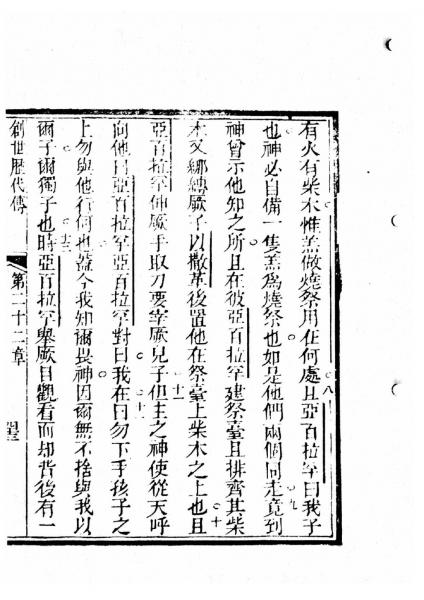 有火有柴木惟羔做燒祭用在何處且亞百拉罕曰我子
八
也神必自備一隻羔爲燒祭也如是他們兩個同走竟到
九
神曾示他知之所且在彼亞百拉罕建祭臺且排齊其柴
木又綁縛厥子以撒革後置他在祭臺上柴木之上也且
十
亞百拉罕伸厥手取刀要宰厥兒子但主之神使從天呼
十一
向他曰亞百拉罕亞百拉罕對曰我在曰勿下手孩子之
十二
上勿與他行何也蓋今我知爾畏神因爾無不捨與我以
爾子爾獨子也時亞百拉罕舉厥目觀看而却背後有一
十三
創世歷代傳
第二十二章